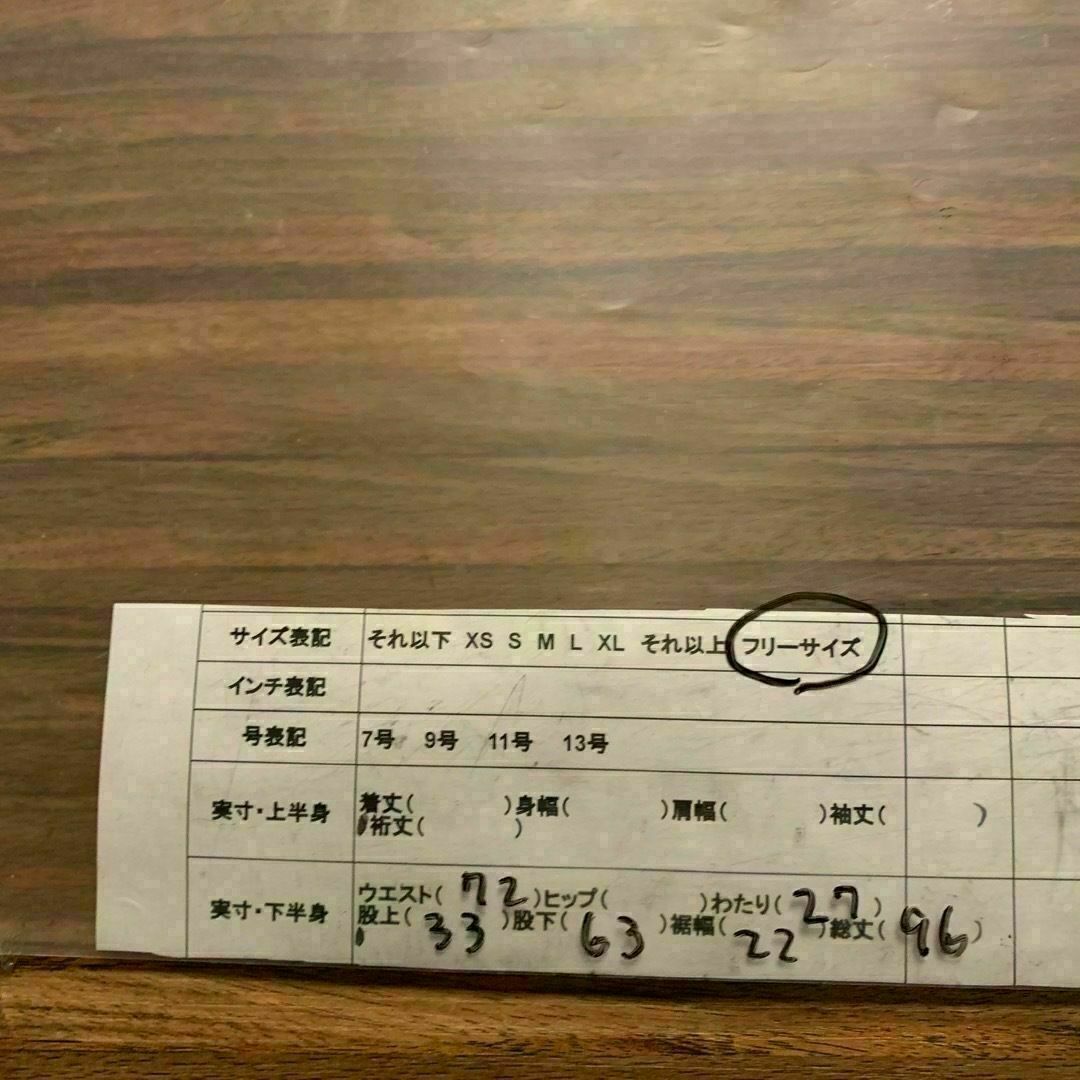 サイズ表記 それ以下 XS S M L XL それ以上 フリーサイズ
インチ表記
号表記 7号 9号 11号 13号
実寸・上半身 着丈( )身幅( )肩幅( )袖丈( )
裄丈( )
実寸・下半身 ウエスト( 72 )ヒップ( )わたり( 27 )
股上( 33 )股下( 63 )裾幅( 22 )総丈( 96 )